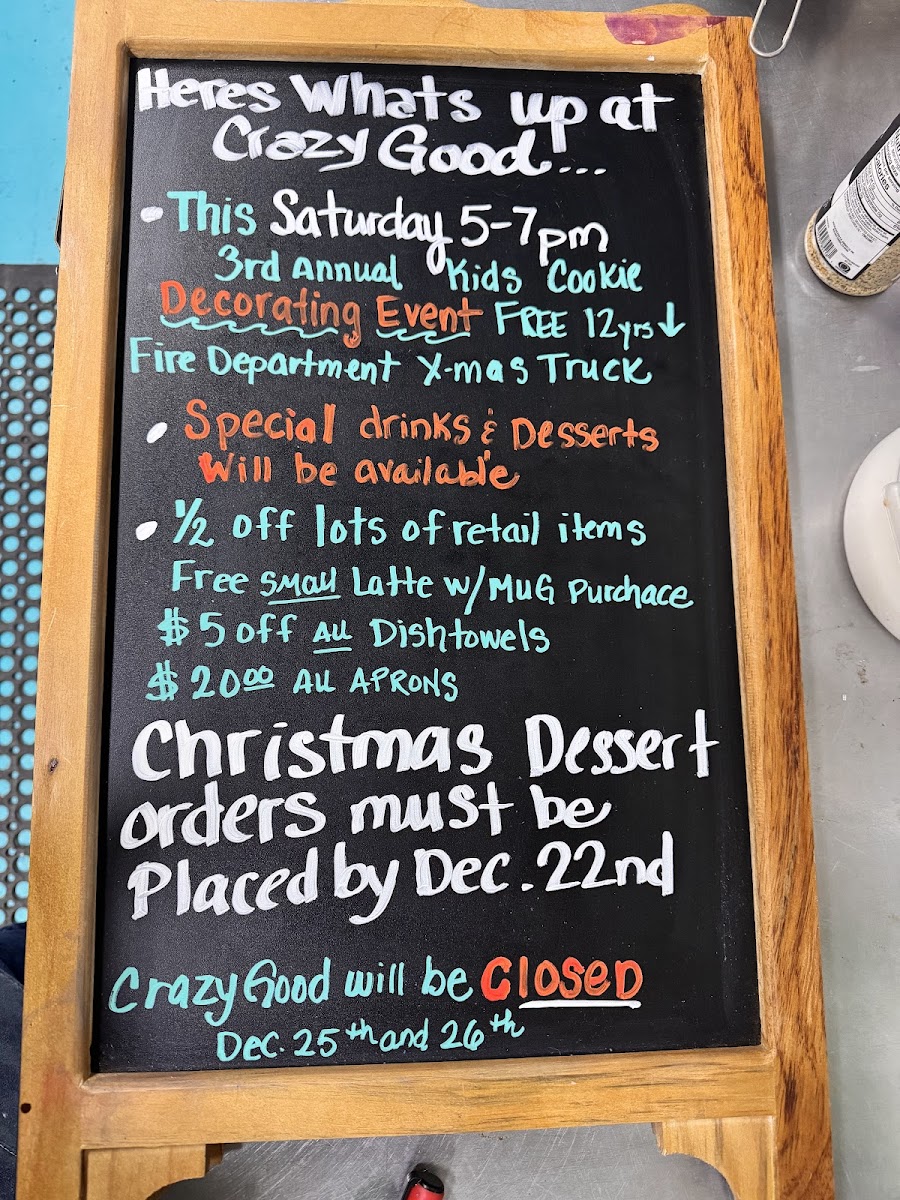 Heres Whats up at
Crazy Good...
• This Saturday 5-7pm
3rd Annual Kids Cookie
Decorating Event FREE 12yrs↓
Fire Department X-mas Truck
• Special drinks & Desserts
Will be available
• 1/2 off lots of retail items
Free small Latte w/ MUG Purchace
$5 off ALL Dishtowels
$20.00 ALL APRONS
Christmas Dessert
orders must be
Placed by Dec. 22nd
Crazy Good will be CLOSED
Dec. 25th and 26th